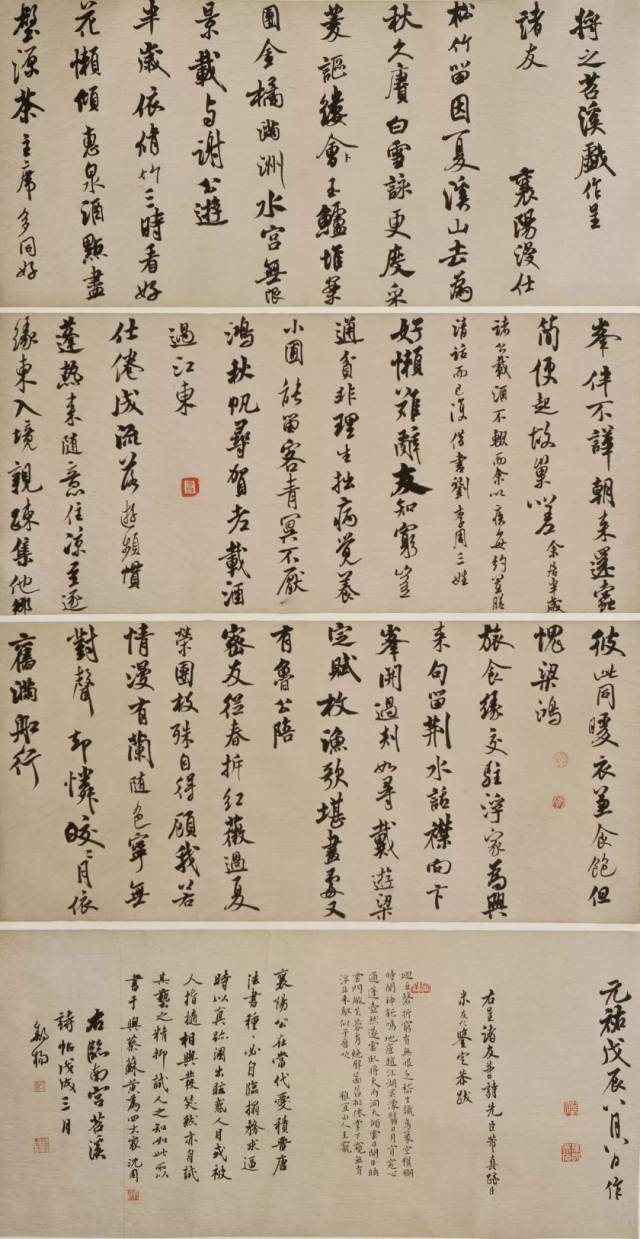 将之苕溪戲作呈
諸友
襄陽漫仕
松竹留因夏溪山去為
秋久賡白雪詠更度采
菱謳縷會玉鱸堆案
團金橘滿洲水宮無限
景載与謝公遊
半歲依脩竹三時看好
花懶傾惠泉酒點盡
壑源茶主席多同好
峯伴不譁朝来還蠹
簡便起故巢嗟余居半歲
諸公載酒不輟而余以疾每約置膳
清話而已復借書劉李周三姓
好懶難辭友知窮豈
通貧非理生拙病覺養
小圃能留客青冥不厭
鴻秋帆尋賀老載酒
過江東
仕倦成流落遊頻慣
蓬熱来隨意住涼至逐
緣東入境親疎集他鄉
彼此同暖衣兼食飽但
愧梁鴻
旅食緣交駐浮家為興
来句留荊水話襟向卞
峯開過剡如尋戴遊梁
定賦枚漁歌堪畫處又
有魯公陪
密友從春拆紅薇過夏
榮團枝殊自得顧我若
情漫有蘭隨色寧無
對聲却憐皎〻月依
舊滿船行
元祐戊辰八月八日作
右呈諸友等詩先臣芾真蹟臣
米友仁鑒定恭跋
襄陽公在當代愛積晉唐
法書種〻必自臨搨務求逼
時以真蹟溷出眩惑人目或被
人指擿相與發笑然亦自試
其藝之精抑試人之知如此所以
書于興蔡蘇黃為四大家沈周
右臨南宮苕溪
詩帖戊戌三月